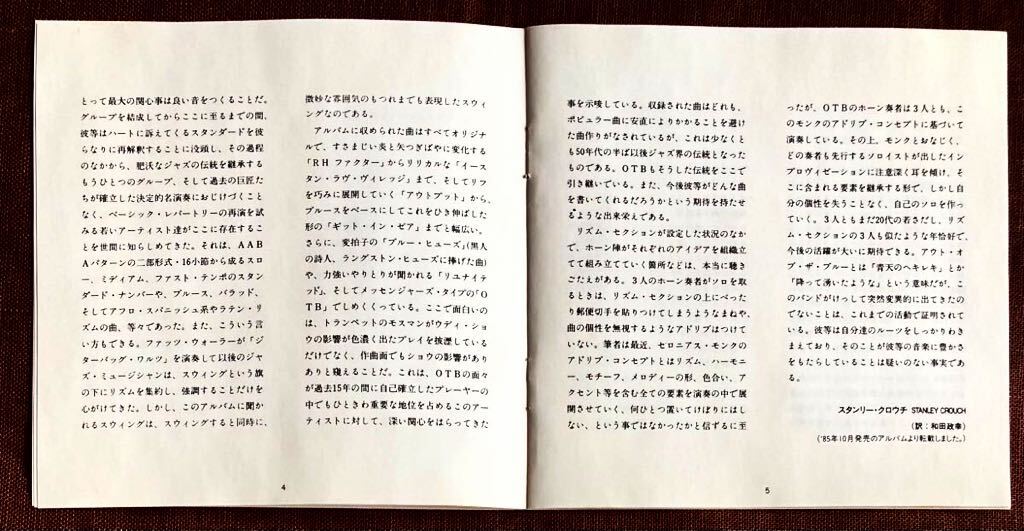 とって最大の関心事は良い音をつくることだ。
グループを結成してからここに至るまでの間、
彼等はハートに訴えてくるスタンダードを彼
らなりに再解釈することに没頭し、その過程
のなかから、肥沃なジャズの伝統を継承する
もうひとつのグループ、そして過去の巨匠た
ちが確立した決定的名演奏におじけづくこと
なく、ベーシック・レパートリーの再演を試
みる若いアーティスト達がここに存在するこ
とを世間に知らしめてきた。それは、AAB
Aパターンの二部形式・16小節から成るスロ
ー、ミディアム、ファスト・テンポのスタン
ダード・ナンバーや、ブルース、バラッド、
そしてアフロ・スパニッシュ系やラテン・リ
ズムの曲、等々であった。また、こういう言
い方もできる。ファッツ・ウォーラーが「ジ
ターバッグ・ワルツ」を演奏して以後のジャ
ズ・ミュージシャンは、スウィングという旗
の下にリズムを集約し、強調することだけを
心がけてきた。しかし、このアルバムに聞か
れるスウィングは、スウィングすると同時に、
微妙な雰囲気のもつれまでも表現したスウィ
ングなのである。
アルバムに収められた曲はすべてオリジナ
ルで、すさまじい炎と矢つぎばやに変化する
「RHファクター」からリリカルな「イースタ
ン・ラヴ・ヴィレッジ」まで、そしてリフ
を巧みに展開していく「アウトプット」から、
ブルースをベースにしてこれをひき伸ばした
形の「ギット・イン・ゼア」までと幅広い。
さらに、変拍子の「ブルー・ヒューズ」(黒人
の詩人、ラングストン・ヒューズに捧げた曲)
や、力強いやりとりが聞かれる「リユナイテ
ッド」、そしてメッセンジャーズ・タイプの「O
TB」でしめくくっている。ここで面白いの
は、トランペットのモスマンがウディ・ショ
ウの影響が色濃く出たプレイを披瀝している
だけでなく、作曲面でもショウの影響があり
ありと窺えることだ。これは、OTBの面々
が過去15年の間に自己確立したプレーヤーの
中でもひときわ重要な地位を占めるこのアー
ティストに対して、深い関心をはらってきた
4
事を示唆している。収録された曲はどれも、
ポピュラー曲に安直によりかかることを避け
た曲作りがなされているが、これは少なくと
も50年代の半ば以後ジャズ界の伝統となった
ものである。OTBもそうした伝統をここで
引き継いでいる。また、今後彼等がどんな曲
を書いてくれるだろうかという期待を持たせ
るような出来栄えである。
リズム・セクションが設定した状況のなか
で、ホーン陣がそれぞれのアイデアを組織立
てて組み立てていく箇所などは、本当に聴き
ごたえがある。3人のホーン奏者がソロを取
るときは、リズム・セクションの上にべった
り郵便切手を貼りつけてしまうようなまねや、
曲の個性を無視するようなアドリブはつけて
いない。筆者は最近、セロニアス・モンクの
アドリブ・コンセプトとはリズム、ハーモニ
ー、モチーフ、メロディーの形、色合い、ア
クセント等を含む全ての要素を演奏の中で展
開させていく、何ひとつ置いてけぼりにはし
ない、という事ではなかったかと信ずるに至
ったが、OTBのホーン奏者は3人とも、こ
のモンクのアドリブ・コンセプトに基づいて
演奏している。その上、モンクとおなじく、
どの奏者も先行するソロイストが出したイン
プロヴィゼーションに注意深く耳を傾け、そ
こに含まれる要素を継承する形で、しかし自
分の個性を失うことなく、自己のソロを作っ
ていく。3人ともまだ20代の若さだし、リズ
ム・セクションの3人も似たような年恰好で、
今後の活躍が大いに期待できる。アウト・オ
ブ・ザ・ブルーとは「青天のヘキレキ」とか
「降って湧いたような」という意味だが、こ
のバンドがけっして突然変異的に出てきたの
でないことは、これまでの活動で証明されて
いる。彼等は自分達のルーツをしっかりわき
まえており、そのことが彼等の音楽に豊かさ
をもたらしていることは疑いのない事実であ
る。
スタンリー・クロウチ STANLEY CROUCH
(訳：和田政幸)
('85年10月発売のアルバムより転載しました。)
5